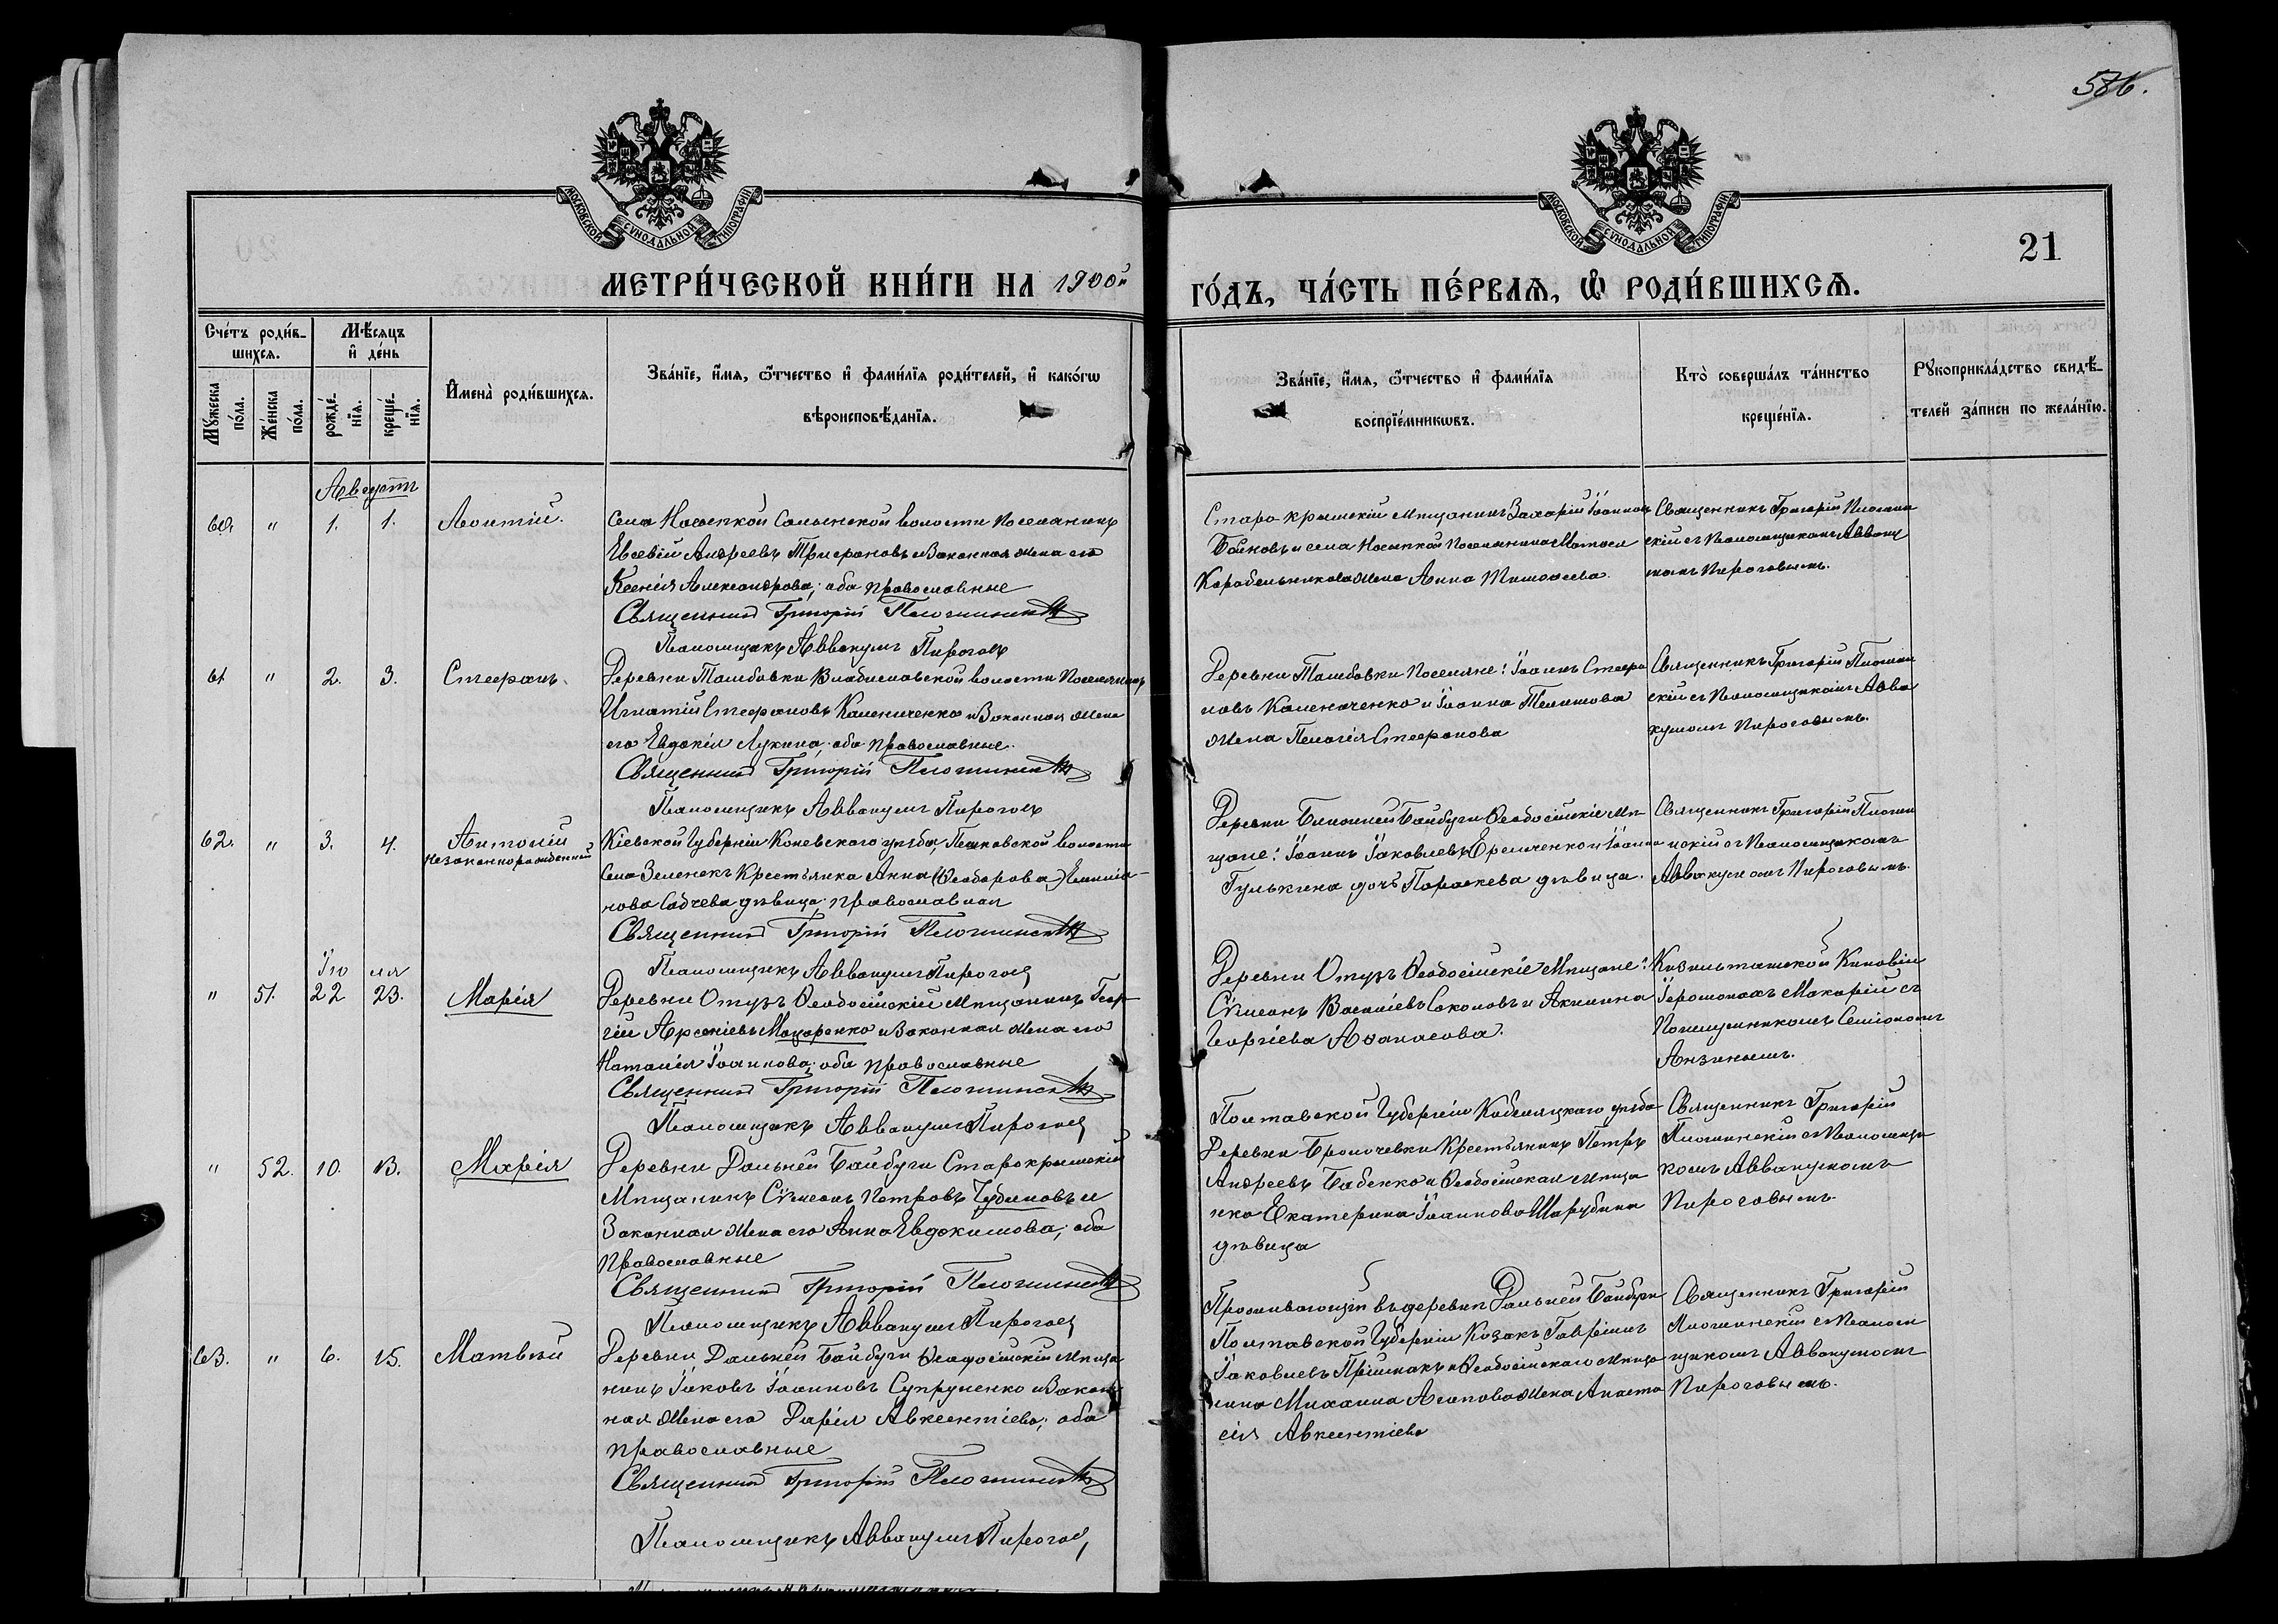 586.
МОСКОВСКОЙ СѴНОДАЛЬНОЙ ТИПОГРАФІИ
МОСКОВСКОЙ СѴНОДАЛЬНОЙ ТИПОГРАФІИ
21
МЕТРИ́ЧЕСКОЙ КНИ́ГИ НА 1900й
ГО́ДЪ, ЧА́СТЬ ПЕ́РВАѦ, Ѽ РОДИ́ВШИХСѦ.
Сче́тъ роди́в-
шихсѧ.
Мꙋ́жеска по́ла.
Же́нска по́ла.
Мѣ́сѧцъ
и҆ де́нь
рожде́-нїѧ.
креще́-нїѧ.
И҆мена̀ роди́вшихсѧ.
Зва́нїе, и҆́мѧ, ѻ҆́тчество и҆ фами́лїѧ роди́телей, и҆ како́гѡ
вѣроисповѣ́данїѧ.
Зва́нїе, и҆́мѧ, ѻ҆́тчество и҆ фами́лїѧ
воспрїе́мникѡвъ.
Кто̀ соверша́лъ та́инство
креще́нїѧ.
Рꙋкоприкла́дство свидѣ́-
телей за́писи по жела́нїю.
Августъ
60. " 1. 1. Леонтій.
Села Насыпкой Салынской волости Поселянинъ
Евсевій Андреевъ Трифоновъ и Законная жена его
Ксенія Александрова; оба православные
Священникъ Григорій
Псаломщикъ Аввакумъ Пироговъ
Старо крымскій Мѣщанинъ Захарій Іоанновъ
Бойковъ и села Насыпкой Поселянина
Корабельникова жена Анна Тимоѳеева.
Священникъ Григорій
скій съ Псаломщикомъ Авваку
момъ Пироговымъ.
61 " 2. 3. Стефанъ.
Деревни Тамбовки Владиславской волости Поселянинъ
Игнатій Стефановъ Калениченко и Законная жена
его Евдокія Лукина; оба православные.
Священникъ Григорій
Псаломщикъ Аввакумъ Пироговъ
Деревни Тамбовки Поселяне: Іоаннъ Стефа
новъ Калениченко и Іоанна
жена Пелагія Стефанова
Священникъ Григорій
скій съ Псаломщикомъ Авва
кумомъ Пироговымъ.
62. " 3. 4. Антоній
незаконнорожденный
Кіевской Губерніи Каневскаго уѣзда, волости
Села Зеленекъ Крестьянка Анна (Ѳеодорова)
дѣвица; православная
Священникъ Григорій
Псаломщикъ Аввакумъ Пироговъ
Деревни Ближней Байбуги Ѳеодосійскіе Мѣ-
щане: Іоаннъ Іаковлевъ Еременко и Іоанна
Гулькина дочь Параскева дѣвица.
Священникъ Григорій
нскій съ Псаломщикомъ
Аввакумомъ Пироговымъ.
Іюля
" 51. 22 23. Марія
Деревни Отузъ Ѳеодосійскій Мѣщанинъ Геор-
гій Арсеніевъ Макаренко и Законная жена его
Наталія Іоаннова; оба православные
Священникъ Григорій
Псаломщикъ Аввакумъ Пироговъ
Деревни Отузъ Ѳеодосійскіе Мѣщане:
Сѵмеонъ Василіевъ Соколовъ и Акилина
Георгіева Аѳанасова.
Кизильташской Киновіи
Іеромонахъ Макарій съ
Послушникомъ
" 52. 10. 13. Марія
Деревни Дальней Байбуги Старокрымскій
Мѣщанинъ Сѵмеонъ Петровъ и
Законная жена его Анна Евдокимова; оба
православные
Священникъ Григорій
Псаломщикъ Аввакумъ Пироговъ
Полтавской Губерніи Кобеляцкаго уѣзда
Деревни Крестьянинъ Петръ
Андреевъ Бабенко и Ѳеодосійская мѣща
нка Екатерина Іоаннова
дѣвица
Священникъ Григорій
съ Псаломщи
комъ Аввакумомъ
Пироговымъ.
63. " 6. 15. Матвѣй
Деревни Дальней Байбуги Ѳеодосійскій Мѣща
нинъ Іаковъ Іоанновъ Супруненко и Закон
ная жена его Дарія Авксентіева; оба
православные
Священникъ Григорій
Псаломщикъ Аввакумъ Пироговъ
Проживающій въ деревнѣ Дальней Байбуги
Полтавской Губерніи Козакъ Гавріилъ
Іаковлевъ и Ѳеодосійскаго мѣща
нина Михаила жена Анаста
сія Авксентіева
Священникъ Григорій
съ Псалом
щикомъ Аввакумомъ
Пироговымъ.